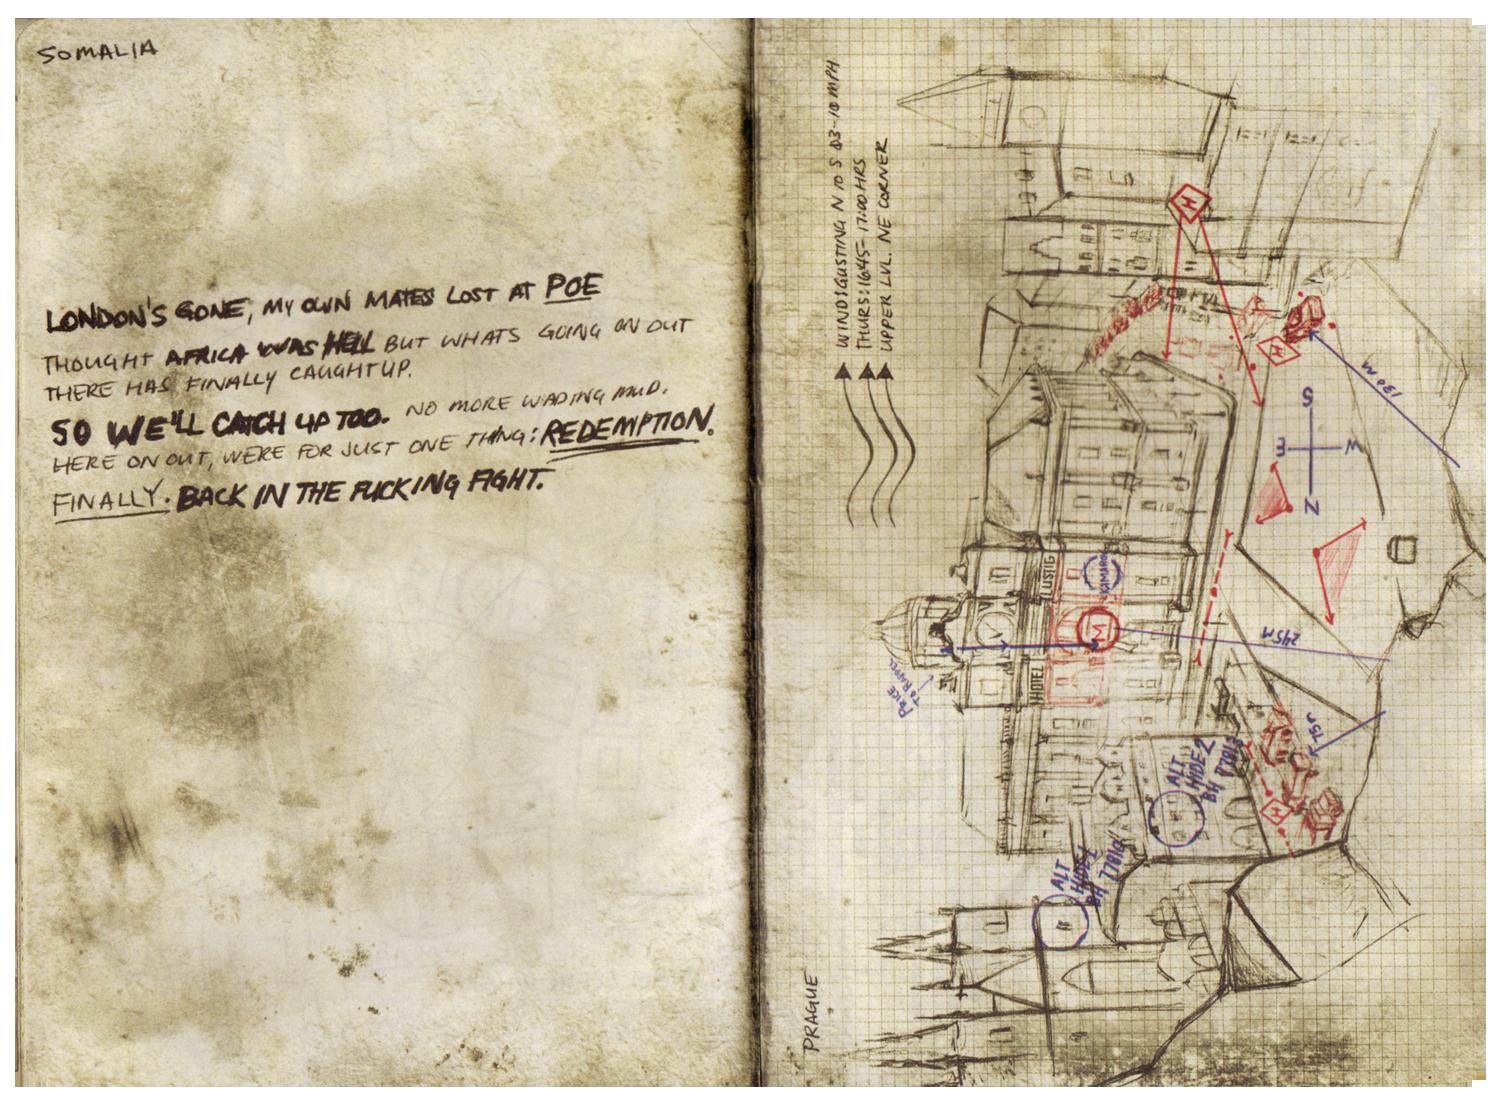 SOMALIA
LONDON'S GONE, MY OWN MATES LOST AT POE
THOUGHT AFRICA WAS HELL BUT WHATS GOING ON OUT
THERE HAS FINALLY CAUGHT UP.
SO WE'LL CATCH UP TOO. NO MORE WADING MUD.
HERE ON OUT, WERE FOR JUST ONE THING: REDEMPTION.
FINALLY. BACK IN THE FUCKING FIGHT.
PRAGUE
WIND/GUSTING N TO S 03-10 MPH
THURS: 1645-1700 HRS
UPPER LVL. NE CORNER
H
H
130 M
S
E
W
N
LUSTIG
KAMAROV
HOTEL
M
245M
PRICE
TO RAPPEL
75M
ALT
HIDE 2
BH
ALT
HIDE 1
BH
H